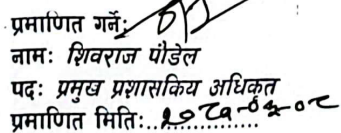 प्रमाणित गर्नेः
नामः शिवराज पौडेल
पदः प्रमुख प्रशासकिय अधिकृत
प्रमाणित मितिः..